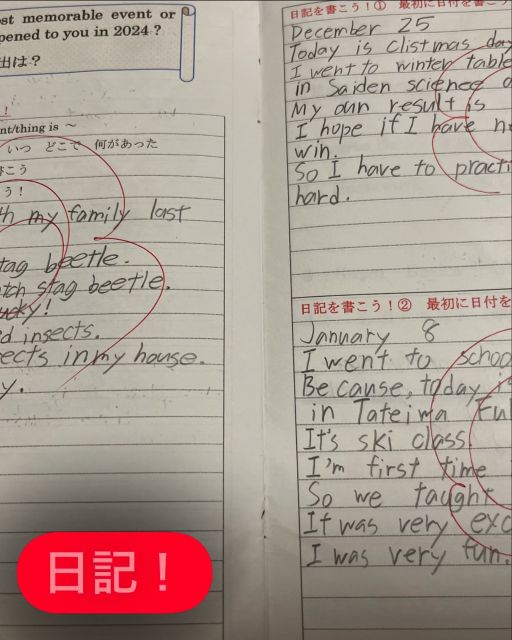 st memorable event or
pened to you in 2024 ?
出は？
！
nt/thing is ～
いつ　どこで　何があった
こう
う！
th my family last
tag beetle.
tch stag beetle.
ucky!
d insects.
ects in my house.
y.
日記を書こう！①　最初に日付を書こう
December 25
Today is clistmas day
I went to winter table
in Saiden
My own result is
I hope if I have n
win.
So I have to practi
hard.
日記を書こう！②　最初に日付を
January 8
I went to schoo
Because, today is
in Tateima Ful
It's ski class.
I'm first time
So we taught
It was very exc
I was very fun.
日記！